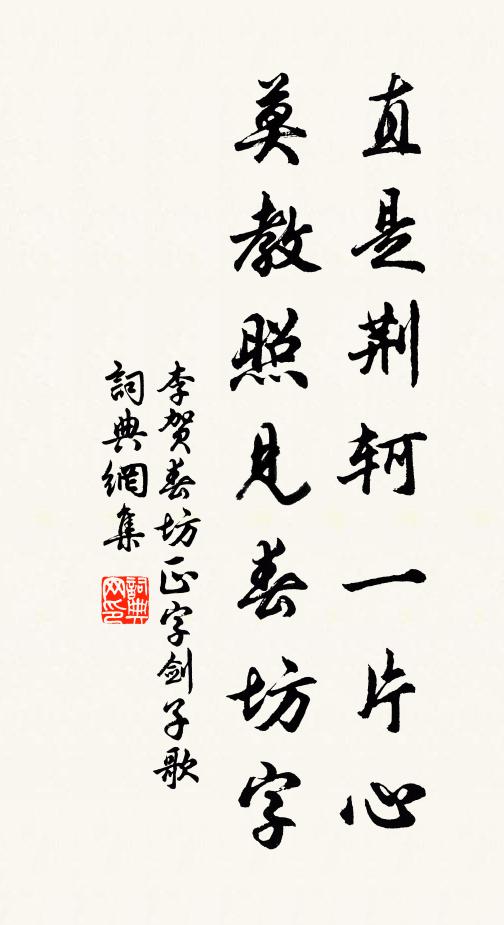 直是荆轲一片心
莫教照見春坊字
李賀春坊正字劍子歌
詞典網集
詞典網印